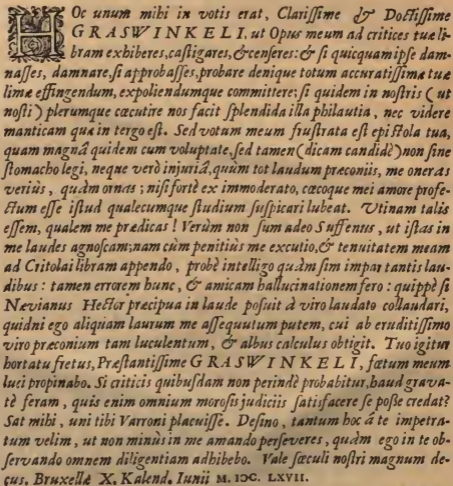 HOc unum mihi in votis erat, Clarissime & Doctissime
GRASWINKELI, ut Opus meum ad critices tuæ li-
bram exhiberes, castigares, & censeres: & si quicquam ipse dam-
nasses, damnare, si approbasses, probare denique totum accuratissimæ tuæ
limæ effingendum, expoliendumque committere; si quidem in nostris (ut
nosti) plerumque cæcutire nos facit splendida illa philautia, nec videre
manticam quæ in tergo est. Sed votum meum frustrata est epistola tua,
quam magnâ quidem cum voluptate, sed tamen (dicam candidè) non sine
stomacho legi, neque verò injuriâ, quùm tot laudum præconiis, me oneras
veriùs, quàm ornas; nisi fortè ex immoderato, cæcoque mei amore profe-
ctum esse istud qualecumque studium suspicari lubeat. Utinam talis
essem, qualem me prædicas! Verùm non sum adeo Suffenus, ut istas in
me laudes agnoscam; nam cùm penitiùs me excutio, & tenuitatem meam
ad Critolai libram appendo, probè intelligo quàm sim impar tantis lau-
dibus: tamen errorem hunc, & amicam hallucinationem fero: quippè si
Nævianus Hector præcipua in laude posuit à viro laudato collaudari,
quidni ego aliquam laurum me assequutum putem, cui ab eruditissimo
viro præconium tam luculentum, & albus calculus obtigit. Tuo igitur
hortatu fretus, Præstantissime GRASWINKELI, fœtum meum
luci propinabo. Si criticis quibusdam non perindè probabitur, haud grava-
tè feram, quis enim omnium morosis judiciis satisfacere se posse credat?
Sat mihi, uni tibi Varroni placuisse. Desino, tantum hoc á te impetra-
tum velim, ut non minùs in me amando perseveres, quàm ego in te ob-
servando omnem diligentiam adhibebo. Vale sæculi nostri magnum de-
cus. Bruxellæ X. Kalend. Iunii M. IƆC. LXVII.